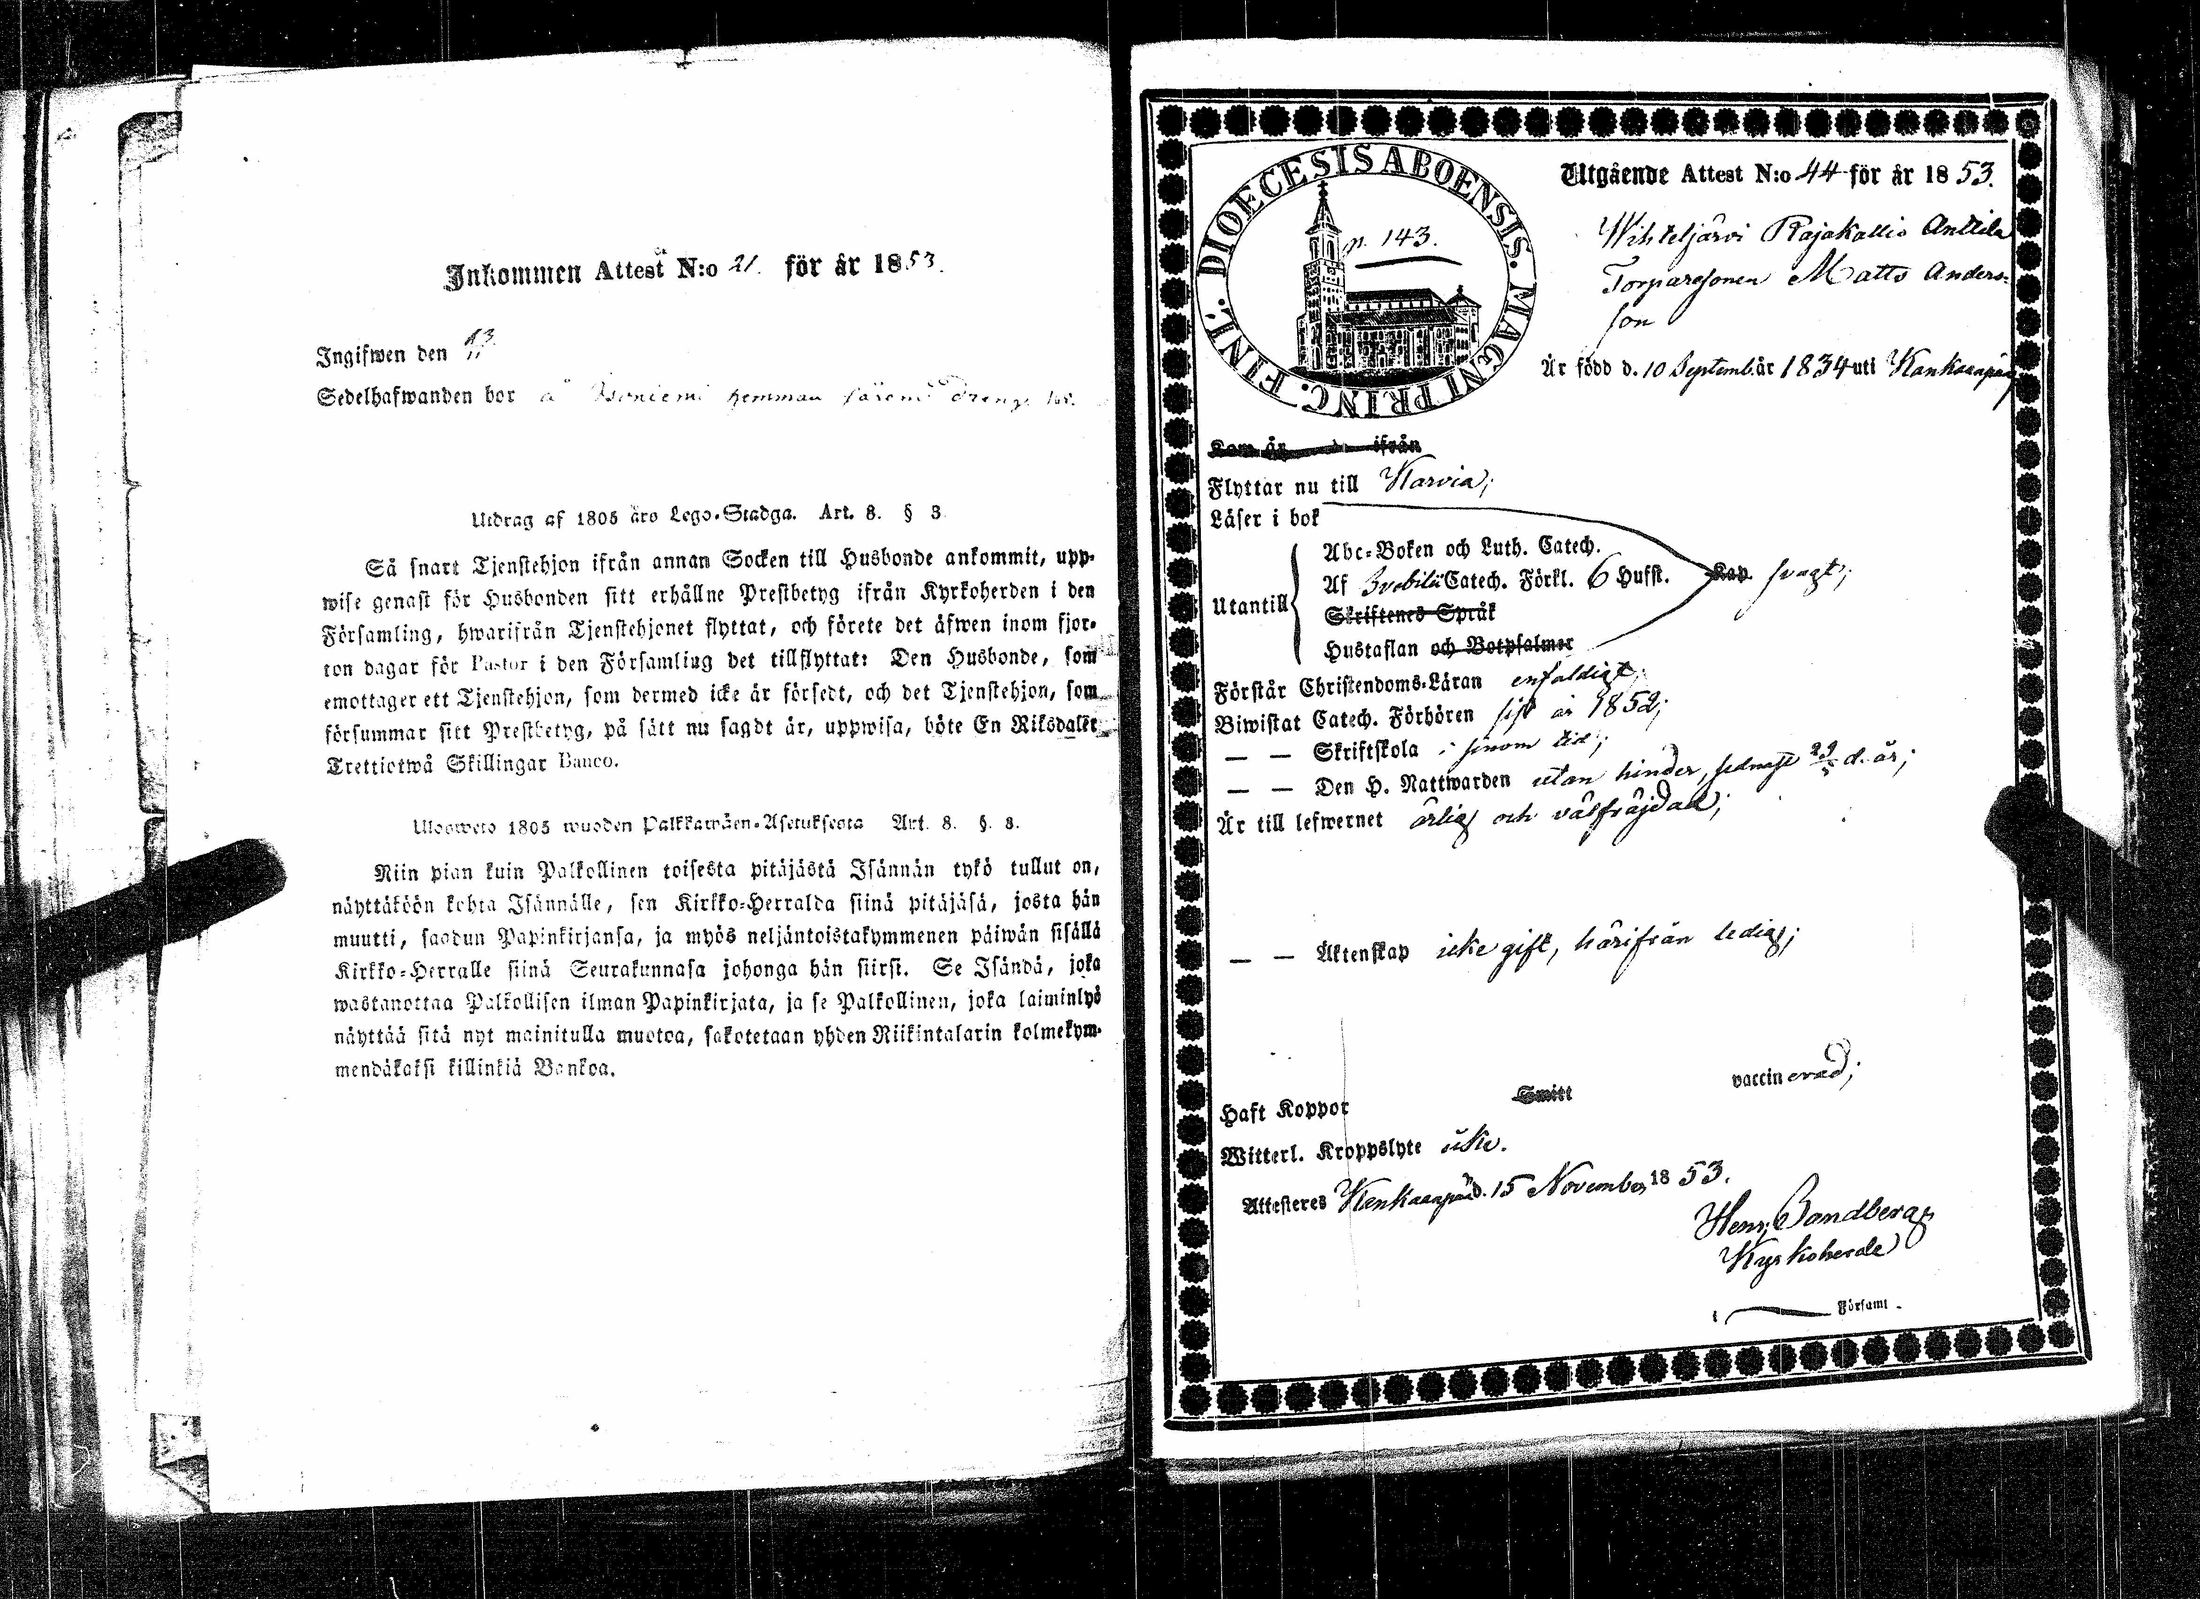 Inkommen Attest N:o 21. för år 1853.
Ingifwen den
Sedelhafwanden bor å hemman såsom Dreng
Utdrag af 1805 års Lego-Stadga. Art. 8. § 3.
Så snart Tjenstehjon ifrån annan Socken till Husbonde ankommit, upp-
wise genast för Husbonden sitt erhållne Prestbetyg ifrån Kyrkoherden i den
Församling, hwarifrån Tjenstehjonet flyttat, och förete det äfwen inom fjor-
ton dagar för Pastor i den Församling det tillflyttat: Den Husbonde, som
emottager ett Tjenstehjon, som dermed icke är försedt, och det Tjenstehjon, som
försummar sitt Prestbetyg, på sätt nu sagdt är, uppwisa, böte En Riksdaler
Trettiotwå Skillingar Banco.
Uloosweto 1805 wuoden Palkkawäen-Asetuksesta Art. 8. §. 3.
Niin pian kuin Palkollinen toisesta pitäjästä Isännän tykö tullut on,
näyttäköön kohta Isännälle, sen Kirkko-Herralda siinä pitäjäsä, josta hän
muutti, saadun Papinkirjansa, ja myös neljäntoistakymmenen päiwän sisällä
Kirkko-Herralle siinä Seurakunnasa johonga hän siirsi. Se Isändä, joka
wastanottaa Palkollisen ilman Papinkirjata, ja se Palkollinen, joka laiminlyö
näyttää sitä nyt mainitulla muotoa, sakotetaan yhden Riikintalarin kolmekym-
mendäkaksi killinkiä Bankoa.
DIOECESIS ABOENSIS. MAGNI PRINC. FINL.
p. 143.
Utgående Attest N:o 44 för år 1853.
Wihteljärvi Rajakallio Anttila
Torparesonen Matts Anders-
son
Är född d. 10 Septemb. år 1834 uti Kankaanpää
Kom år ifrån
Flyttar nu till Karvia;
Läser i bok
Abc-Boken och Luth. Catech.
Af Svebilii Catech. Förkl. 6 Hufst. Kap. svagt;
Utantill
Skriftenes Språk
Hustaflan och Botpsalmer
Förstår Christendoms-Läran enfaldigt;
Biwistat Catech. Förhören sist år 1852;
— — Skriftskola i sinom tid;
— — Den H. Nattwarden utan hinder, sednast 29/5 d. år;
Är till lefwernet ärlig och välfräjdad;
— — Äktenskap icke gift, härifrån ledig;
Haft Koppor Smitt vaccinerad;
Witterl. Kroppslyte icke.
Attesteres Kankaanpää d. 15 November 1853.
Henr. Sandberg
Kyrkoherde
i Församl.